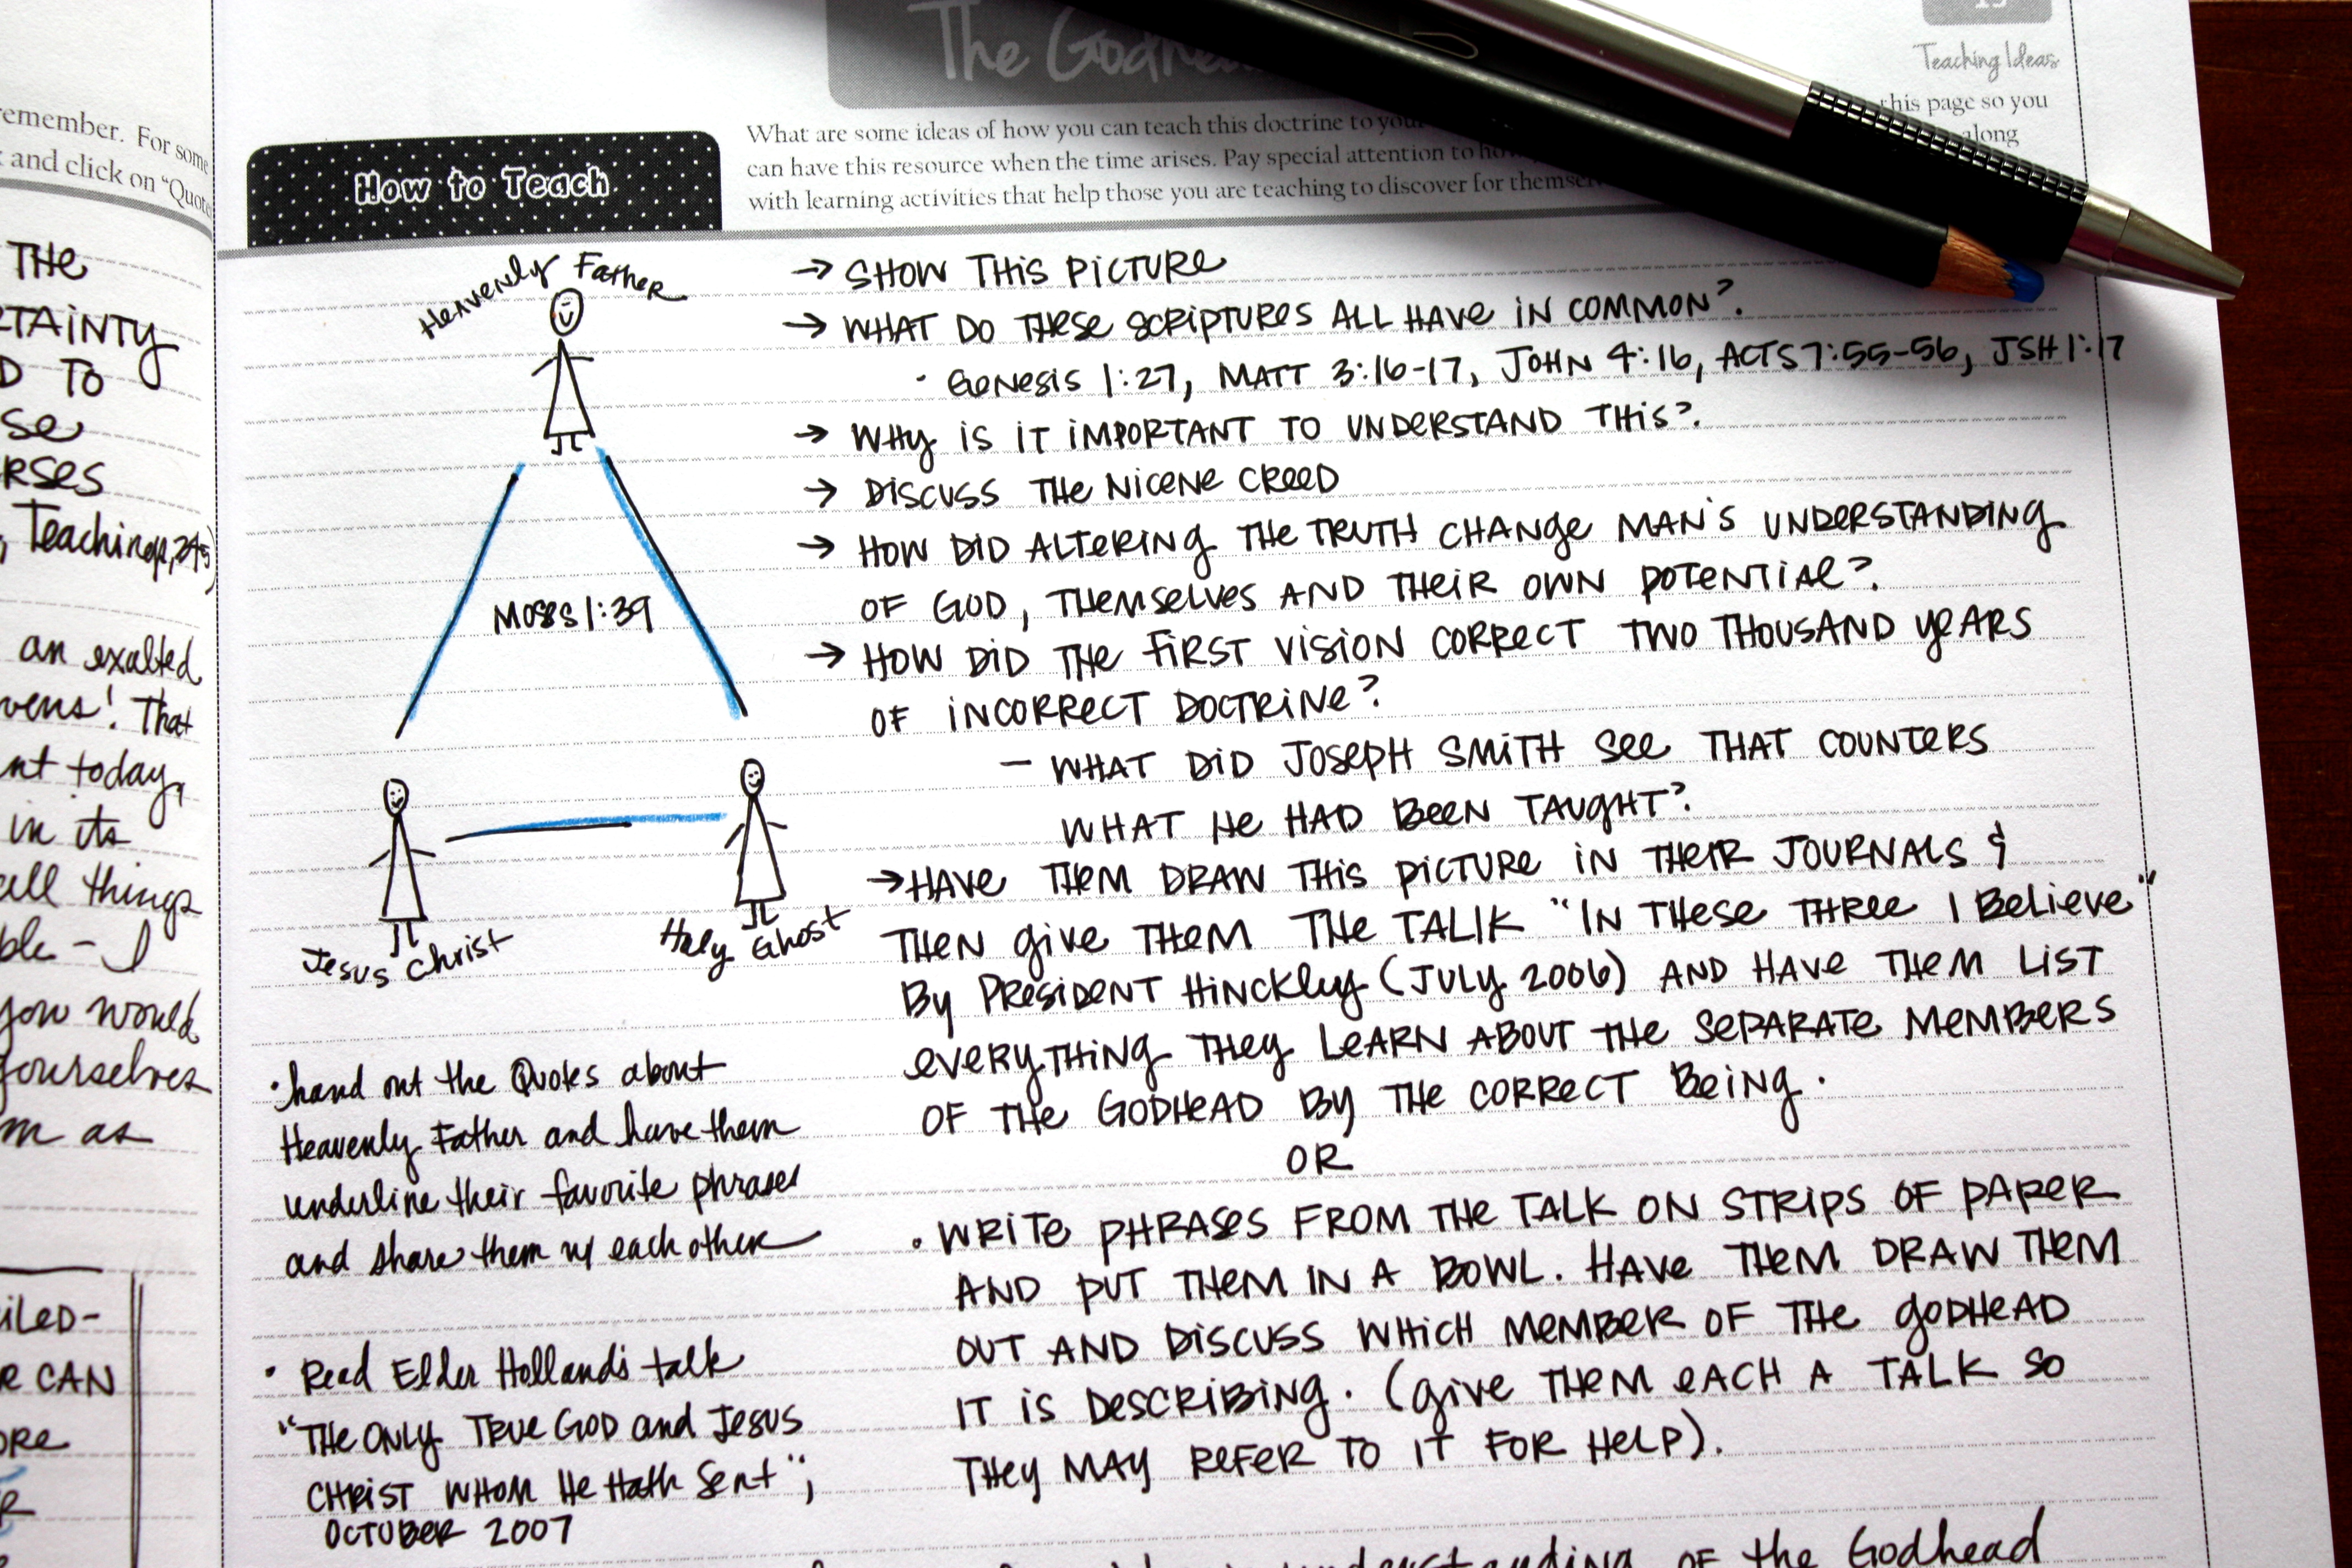 remember. For some
and click on "Quotes
THE
D TO
se
Teachings, 345)
an exalted
That
today,
in its
all things
ble - I
you would
yourselves
m as
CAN
The Godhead
15
Teaching Ideas
How to Teach
What are some ideas of how you can teach this doctrine to your
this page so you
can have this resource when the time arises. Pay special attention to how
along
with learning activities that help those you are teaching to discover for themselves
Heavenly Father
Moses 1:39
Jesus Christ
Holy Ghost
• hand out the Quotes about
Heavenly Father and have them
underline their favorite phrases
and share them w/ each other
• Read Elder Holland's talk
"THE ONLY TRUE GOD and JESUS
CHRIST WHOM He Hath Sent";
OCTOBER 2007
→ SHOW THIS PICTURE
→ WHAT DO THESE SCRIPTURES ALL HAVE IN COMMON?
• GENESIS 1:27, MATT 3:16-17, JOHN 4:16, ACTS 7:55-56, JSH 1:17
→ WHY IS IT IMPORTANT TO UNDERSTAND THIS?
→ DISCUSS THE NICENE CREED
→ HOW DID ALTERING THE TRUTH CHANGE MAN'S UNDERSTANDING
OF GOD, THEMSELVES AND THEIR OWN POTENTIAL?
→ HOW DID THE FIRST VISION CORRECT TWO THOUSAND YEARS
OF INCORRECT DOCTRINE?
– WHAT DID JOSEPH SMITH SEE THAT COUNTERS
WHAT HE HAD BEEN TAUGHT?
→ HAVE THEM DRAW THIS PICTURE IN THEIR JOURNALS &
THEN GIVE THEM THE TALK "IN THESE THREE I BELIEVE"
BY PRESIDENT HINCKLEY (JULY 2006) AND HAVE THEM LIST
EVERYTHING THEY LEARN ABOUT THE SEPARATE MEMBERS
OF THE GODHEAD BY THE CORRECT BEING.
OR
• WRITE PHRASES FROM THE TALK ON STRIPS OF PAPER
AND PUT THEM IN A BOWL. HAVE THEM DRAW THEM
OUT AND DISCUSS WHICH MEMBER OF THE GODHEAD
IT IS DESCRIBING. (GIVE THEM EACH A TALK SO
THEY MAY REFER TO IT FOR HELP).
understanding OF the Godhead